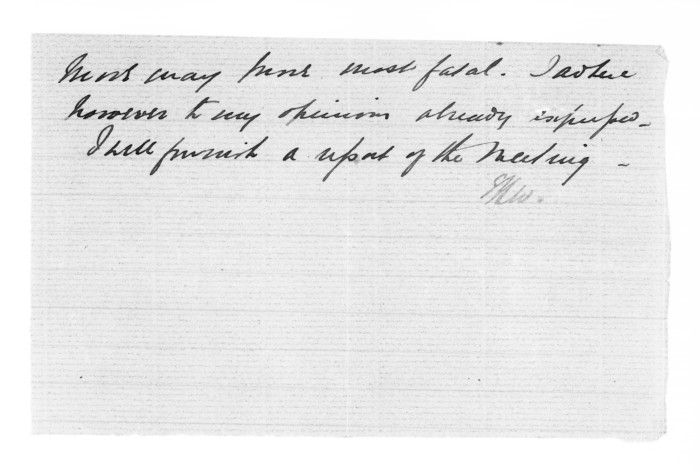 may prove most fatal. I adhere
however to my opinions already expressed –
I will furnish a report of the Meeting –